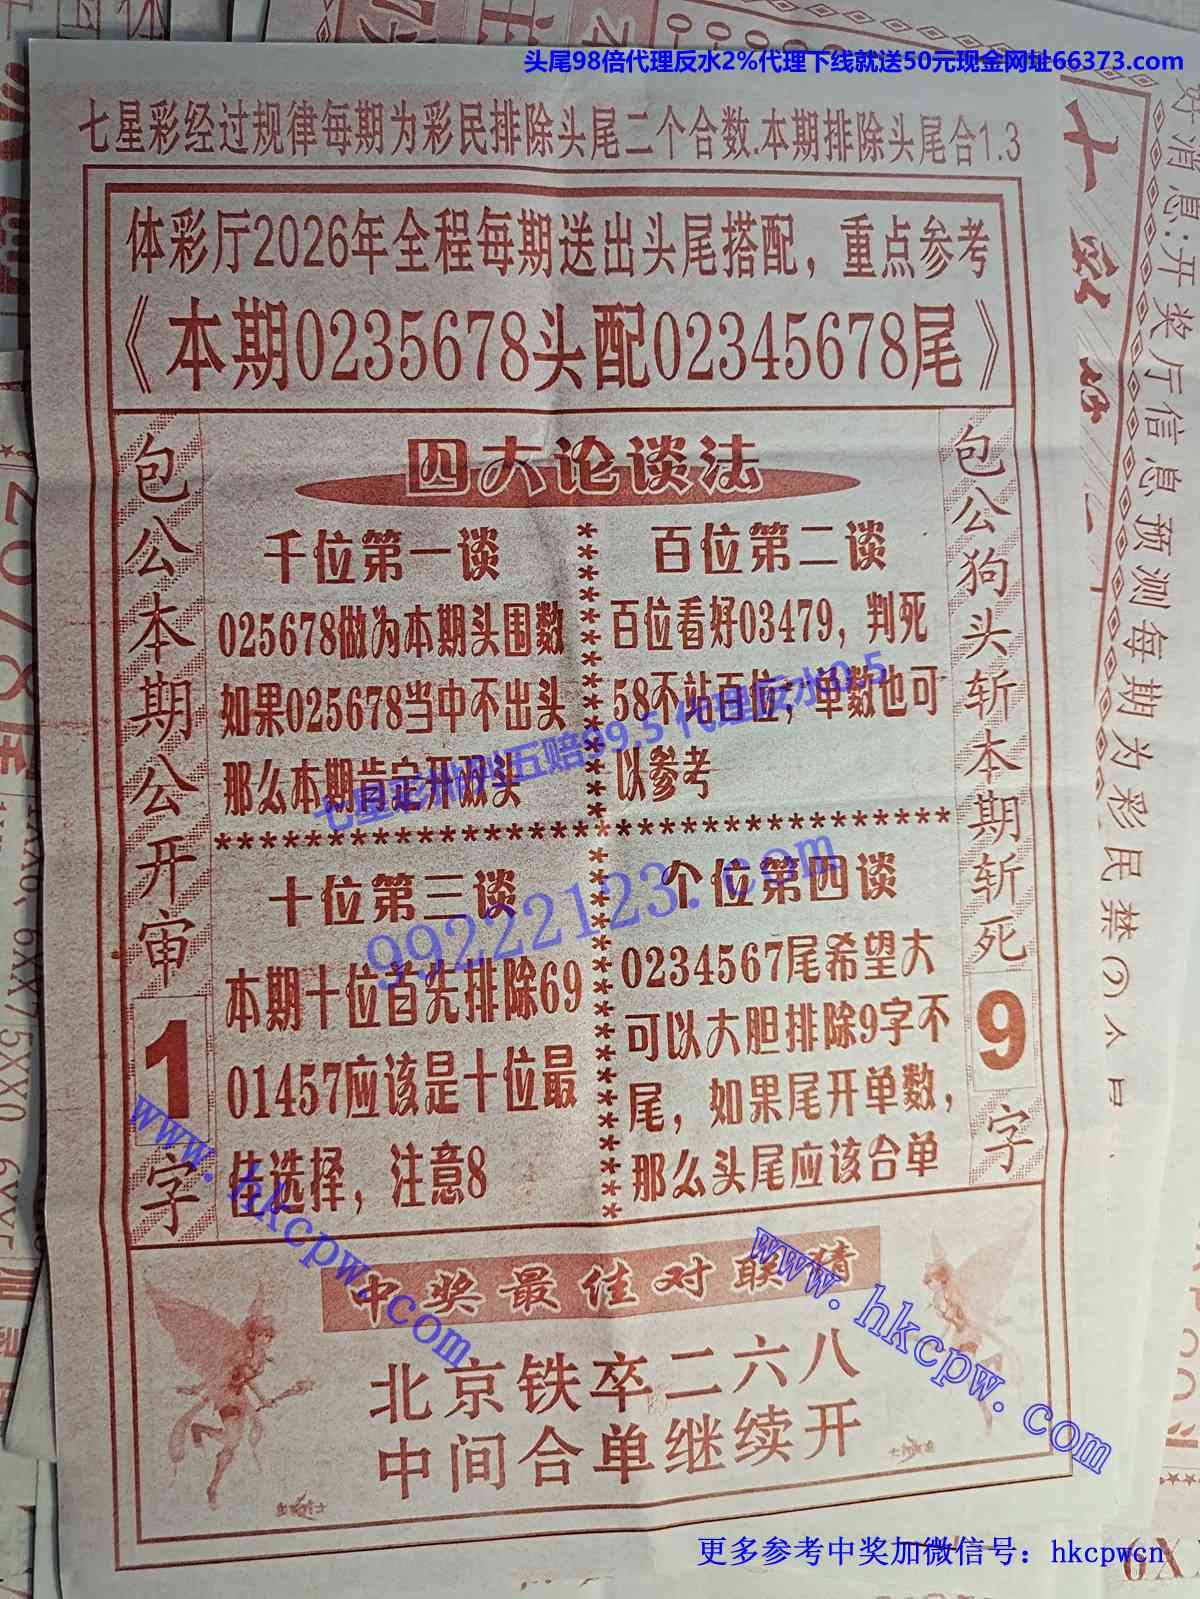 头尾98倍代理反水2%代理下线就送50元现金网址66373.com
七星彩经过规律每期为彩民排除头尾二个合数.本期排除头尾合1.3
体彩厅2026年全程每期送出头尾搭配，重点参考
《本期0235678头配02345678尾》
包公本期公开审1字
四大论谈法
千位第一谈
025678做为本期头围数
如果025678当中不出头
那么本期肯定开双头
百位第二谈
百位看好03479，判死
58不站百位；单数也可
以参考
*********************************
十位第三谈
本期十位首先排除69
01457应该是十位最
佳选择，注意8
个位第四谈
0234567尾希望大
可以大胆排除9字不
尾，如果尾开单数，
那么头尾应该合单
包公狗头斩本期斩死9字
七星彩州别五赔99.5 代理反水0.5
99222123.com
www.hkcpw.com
www.hkcpw.com
中奖最佳对联猜
北京铁卒二六八
中间合单继续开
好消息:开奖厅信息预测每期为彩民禁
更多参考中奖加微信号：hkcpwcn